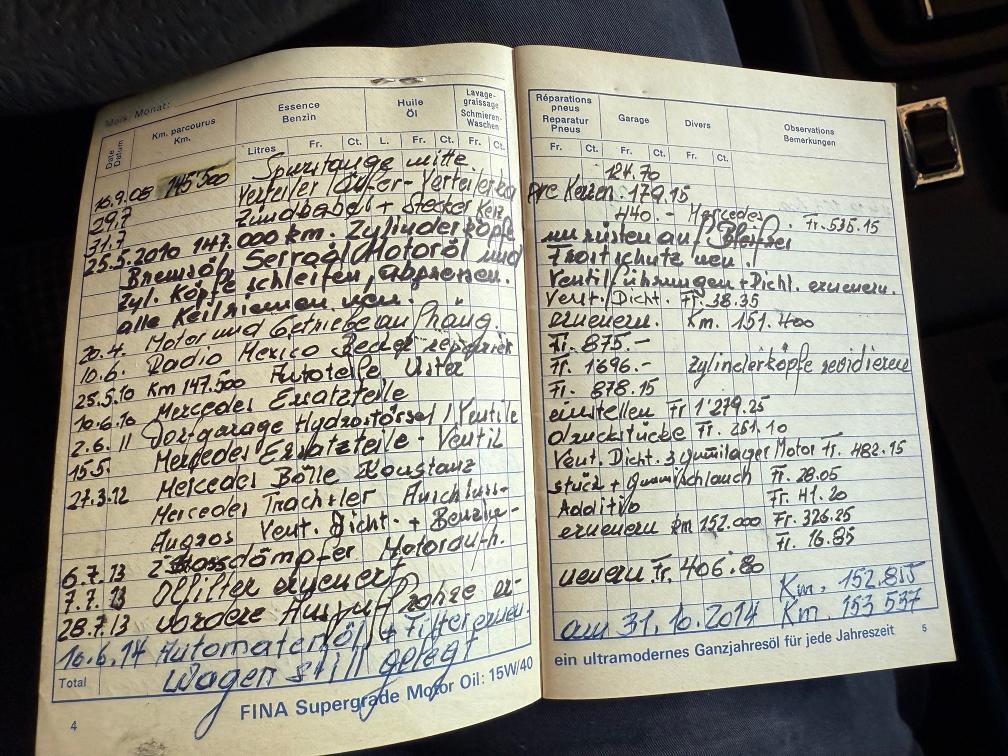 Mois Monat:
Date Datum
Km. parcourus Km.
Essence Benzin
Huile Öl
Lavage-graissage Schmieren-Waschen
Litres Fr. Ct. L. Fr. Ct. Fr. Ct.
16.9.08 145.500 Spurstange mitte
29.7 Verteiler läufer - Verteilerka
31.7 Zündkabel + Stecker Kerz
25.5.2010 147.000 km. Zylinderköpfe
Bremsöl, Servoöl/Motoröl und
Zyl. Köpfe schleifen, abpressen.
alle Keilriemen neu.
20.4. Motor und Getriebe aufhäng.
10.6. Radio Mexico Becker repariert
25.5.10 Km 147.500 Autoteile Uster
10.6.10 Mercedes Ersatzteile
2.6.11 garage Hydrostössel/Ventile
15.5. Mercedes Ersatzteile - Ventil
27.3.12 Mercedes Bölle Konstanz
Mercedes Trachsler Anschluss-
Augros Vent. Dicht. + Benzin-
6.7.13 2 Stossdämpfer Motorauh.
7.7.13 Ölfilter erneuert
28.7.13 vordere Auspuffrohre er-
16.6.14 Automatenöl + Filter erneu.
Wagen still gelegt
Total
4
FINA Supergrade Motor Oil: 15W/40
Réparations pneus Reparatur Pneus
Garage
Divers
Observations Bemerkungen
Fr. Ct. Fr. Ct. Fr. Ct.
124.70
ppe Kerzen. 179.15
440.- Mercedes Fr. 535.15
umrüsten auf Bleifrei
Frostschutz neu.
Ventilführungen + Dichl. erneuern.
Vent. Dicht. Fr. 38.35
erneuern. Km. 151.400
Fr. 875.-
Fr. 1696.- Zylinderköpfe revidieren
Fr. 878.15
einstellen Fr 1'279.25
druckstücke Fr. 251.10
Vent. Dicht. 3 gumilager Motor Fr. 482.15
stück + gumi/schlauch Fr. 28.05
Additiv Fr. 41.20
erneuern km 152.000 Fr. 326.25
Fr. 16.85
neuern Fr. 406.80
Km. 152.855
am 31.10.2014 Km. 153 537
ein ultramodernes Ganzjahresöl für jede Jahreszeit
5